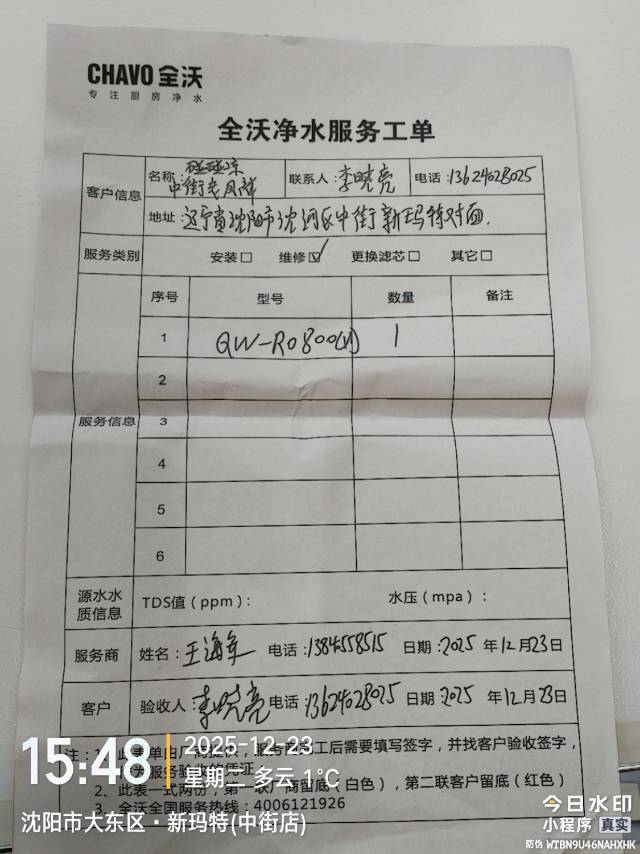 CHAVO 全沃
专注厨房净水
全沃净水服务工单
客户信息
名称: 碰碰凉
中街
联系人: 李晓亮
电话: 13624028025
地址: 辽宁省沈阳市沈河区中街新玛特对面.
服务类别
安装□ 维修☑ 更换滤芯□ 其它□
服务信息
序号 型号 数量 备注
1 QW-RO800 1
2
3
4
5
6
源水水质信息
TDS值(ppm): 水压(mpa):
服务商 姓名: 王海军 电话: 日期: 2025 年12月23日
客户 验收人: 李晓亮 电话: 13624028025 日期 2025 年12月23日
注: 1、此表单由厂商提供,服务 工后需要填写签字,并找客户验收签字,
为服务验收的凭证
2、此表一式两份,第一联厂商留底(白色),第二联客户留底(红色)
3、全沃全国服务热线: 4006121926
15:48
2025-12-23
星期二 多云 1℃
沈阳市大东区·新玛特(中街店)
今日水印
小程序 真实
防伪 WTBN9U46NAHXHK